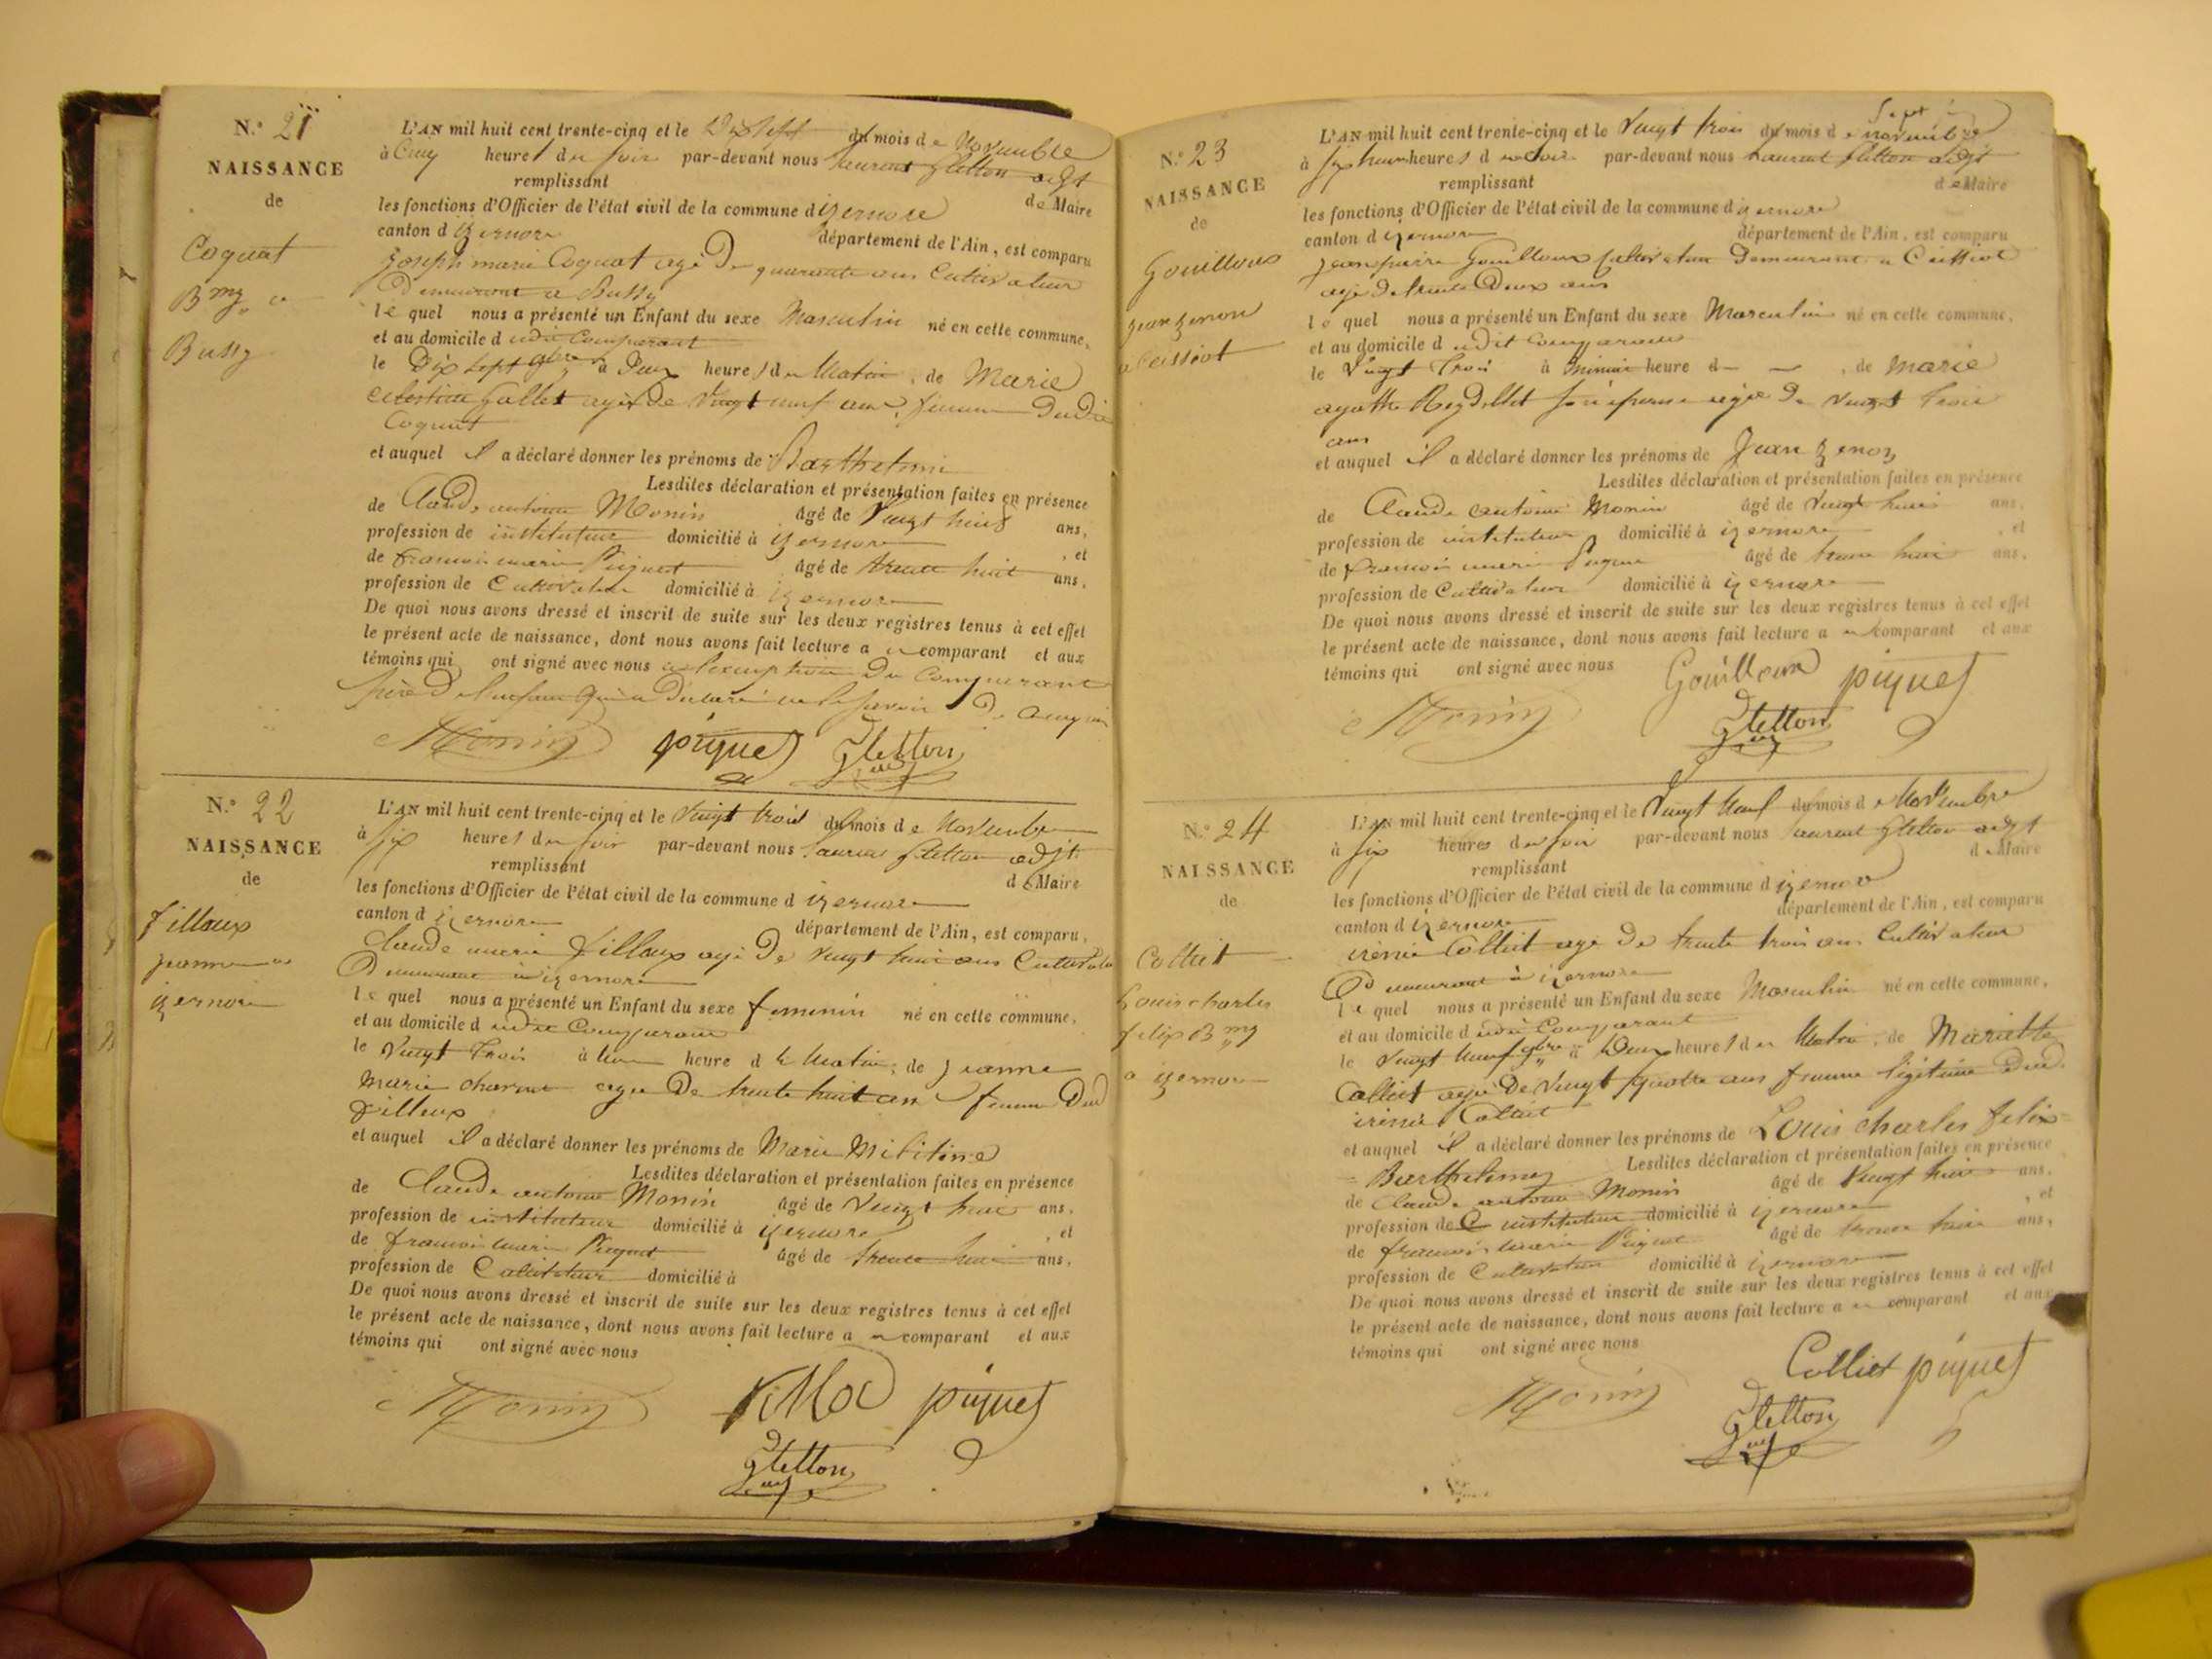 N.° 21
NAISSANCE
de
Coquat
Bmy a
Bussy
L'AN mil huit cent trente-cinq et le Dix Sept du mois de Novembre
à Cinq heures du Soir par-devant nous Laurent Gletton adjt
remplissant de Maire
les fonctions d'Officier de l'état civil de la commune d izernore
canton d izernore département de l'Ain, est comparu
joseph marie Coquat agé De quarante ans Cultivateur
Demeurant a Bussy
le quel nous a présenté un Enfant du sexe Masculin né en cette commune,
et au domicile d udit Comparant
le Dix Sept 9bre à Deux heures du Matin, de Marie
celestine Gallet agée De Vingt neuf ans, femme Dudit
Coquat
et auquel il a déclaré donner les prénoms de Barthelemi
Lesdites déclaration et présentation faites en présence
de Claude antoine Monin âgé de Vingt huit ans,
profession de instituteur domicilié à izernore, et
de francois marie Piquet âgé de trente huit ans,
profession de Cultivateur domicilié à izernore
De quoi nous avons dressé et inscrit de suite sur les deux registres tenus à cet effet
le présent acte de naissance, dont nous avons fait lecture a u comparant et aux
témoins qui ont signé avec nous a l'exception Du Comparant
père De l'enfant Qui a Declaré ne le Savoir De ce enquis
Monin piquet Gletton
N.° 22
NAISSANCE
de
filloux
jeanne a
izernore
L'AN mil huit cent trente-cinq et le Vingt trois du mois de Novembre
à Six heures du Soir par-devant nous Laurent Gletton adjt
remplissant de Maire
les fonctions d'Officier de l'état civil de la commune d izernore
canton d izernore département de l'Ain, est comparu,
Claude marie filloux agé De Vingt huit ans Cultivateur
Demeurant a izernore
le quel nous a présenté un Enfant du sexe feminin né en cette commune,
et au domicile d udit Comparant
le Vingt Trois à une heure d u Matin, de jeanne
Marie charvet agée De trente huit ans femme Dud
filloux
et auquel il a déclaré donner les prénoms de Marie Mititine
Lesdites déclaration et présentation faites en présence
de Claude antoine Monin âgé de Vingt huit ans,
profession de instituteur domicilié à izernore, et
de francois marie Piquet âgé de trente huit ans,
profession de Cultivateur domicilié à
De quoi nous avons dressé et inscrit de suite sur les deux registres tenus à cet effet
le présent acte de naissance, dont nous avons fait lecture a u comparant et aux
témoins qui ont signé avec nous
Monin piquet
Gletton
N.° 23
NAISSANCE
de
Gouilloux
jean zenon
a Ceissiat
L'AN mil huit cent trente-cinq et le Vingt trois du mois d e novembre
à heures d u Soir par-devant nous Laurent Gletton adjt
remplissant de Maire
les fonctions d'Officier de l'état civil de la commune d izernore
canton d izernore département de l'Ain, est comparu
jean pierre Gouilloux Cultivateur Demeurant a Ceissiat
agé De trente Deux ans
le quel nous a présenté un Enfant du sexe Masculin né en cette commune,
et au domicile d udit Comparant
le Vingt Trois à Minuit heure d, de marie
agathe Reydellet Son épouse agée De Vingt Trois
ans
et auquel il a déclaré donner les prénoms de Jean Zenon
Lesdites déclaration et présentation faites en présence
de Claude antoine Monin âgé de Vingt huit ans,
profession de instituteur domicilié à izernore, et
de francois marie Piquet âgé de trente huit ans,
profession de Cultivateur domicilié à izernore
De quoi nous avons dressé et inscrit de suite sur les deux registres tenus à cet effet
le présent acte de naissance, dont nous avons fait lecture a u comparant et aux
témoins qui ont signé avec nous Gouilloux piquet
Monin Gletton
N.° 24
NAISSANCE
de
Colliet
Louis charles
felix Bmy
a izernore
L'AN mil huit cent trente-cinq et le Vingt Neuf du mois d e Novembre
à Six heures du Soir par-devant nous Laurent Gletton adjt
remplissant de Maire
les fonctions d'Officier de l'état civil de la commune d izernore
canton d izernore département de l'Ain, est comparu
irénée Colliet agé De trente trois ans Cultivateur
Demeurant à izernore
le quel nous a présenté un Enfant du sexe Masculin né en cette commune,
et au domicile d udit Comparant
le Vingt Neuf 9bre à Deux heures du Matin, de Mariette
Colliet agée De Vingt quatre ans femme légitime Dud.
irénée Colliet
et auquel il a déclaré donner les prénoms de Louis charles felix
Barthelemy Lesdites déclaration et présentation faites en présence
de Claude antoine Monin âgé de Vingt huit ans,
profession de instituteur domicilié à izernore, et
de francois marie Piquet âgé de trente huit ans,
profession de Cultivateur domicilié à izernore
De quoi nous avons dressé et inscrit de suite sur les deux registres tenus à cet effet
le présent acte de naissance, dont nous avons fait lecture a u comparant et aux
témoins qui ont signé avec nous
Colliet piquet
Monin Gletton